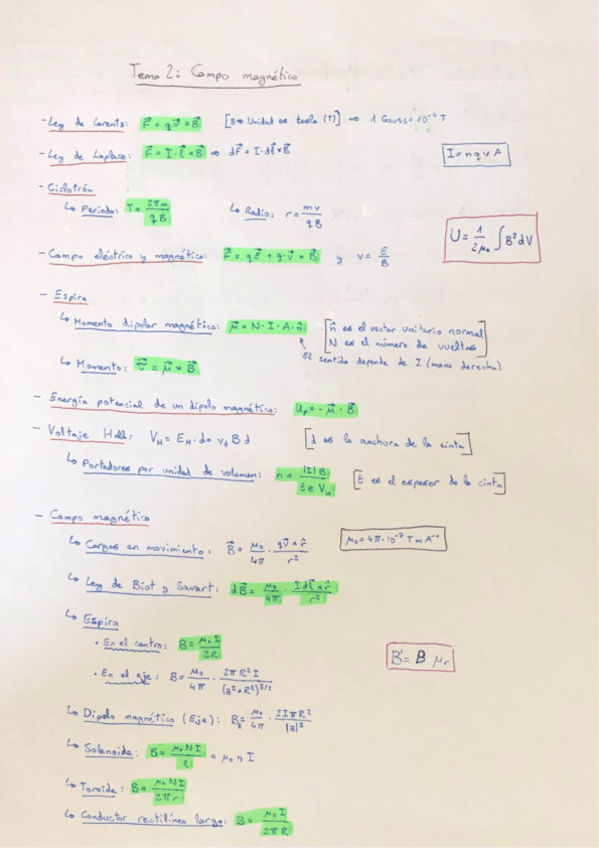 Tema 2: Campo magnético
- Ley de Lorentz: F⃗ = q·v⃗ × B⃗ [B → Unidad es tesla (T)] ⇒ 1 Gauss = 10⁻⁴ T
- Ley de Laplace: F⃗ = I·l⃗ × B⃗ ⇒ dF⃗ = I·dl⃗ × B⃗
I = n q v A
- Ciclotrón
↳ Periodo: T = 2πm / qB ↳ Radio: r = mv / qB
U = 1/2μ₀ ∫B² dV
- Campo eléctrico y magnético: F⃗ = qE⃗ + q·v⃗ × B⃗ y v = E/B
- Espira
↳ Momento dipolar magnético: μ⃗ = N·I·A·n̂ [n̂ es el vector unitario normal
N es el número de vueltas]
El sentido depende de I (mano derecha)
↳ Momento: τ⃗ = μ⃗ × B⃗
- Energía potencial de un dipolo magnético: Uₚ = -μ⃗ · B⃗
- Voltaje Hall: V_H = E_H · d = v_d B d [d es la anchura de la cinta]
↳ Portadores por unidad de volumen: n = |I| B / t e V_H [t es el espesor de la cinta]
- Campo magnético
↳ Cargas en movimiento: B⃗ = μ₀/4π · qv⃗ × r̂ / r²
μ₀ = 4π·10⁻⁷ T m A⁻¹
↳ Ley de Biot y Savart: dB⃗ = μ₀/4π · I dl⃗ × r̂ / r²
↳ Espira
• En el centro: B = μ₀ I / 2R
• En el eje: B = μ₀/4π · 2πR² I / (z² + R²)^3/2
B' = B μr
↳ Dipolo magnético (Eje): B_z = μ₀/4π · 2IπR² / |z|³
↳ Solenoide: B = μ₀ N I / l = μ₀ n I
↳ Toroide: B = μ₀ N I / 2πr
↳ Conductor rectilíneo largo: B = μ₀ I / 2πR